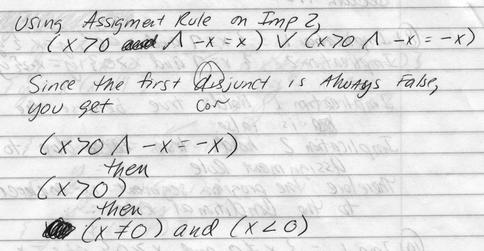 Using Assigment Rule on Imp 2,
(x>0 ∧ -x = x) ∨ (x>0 ∧ -x = -x)
Since the first disjunct is Always False,
you get
con
(x>0 ∧ -x = -x)
then
(x>0)
then
(x≠0) and (x<0)